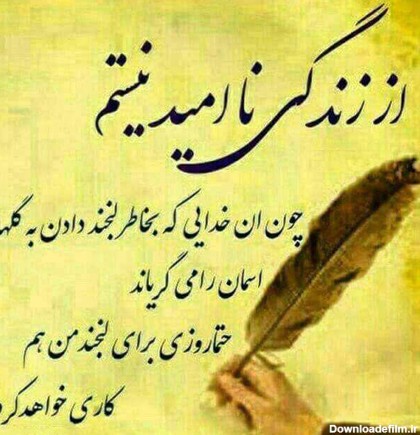 از زندگی نا امید نیستم
چون ان خدایی که بخاطر لبخند دادن به گلها
اسمان را می گریاند
حتماروزی برای لبخند من هم
کاری خواهد کرد
Downloadefilm.ir